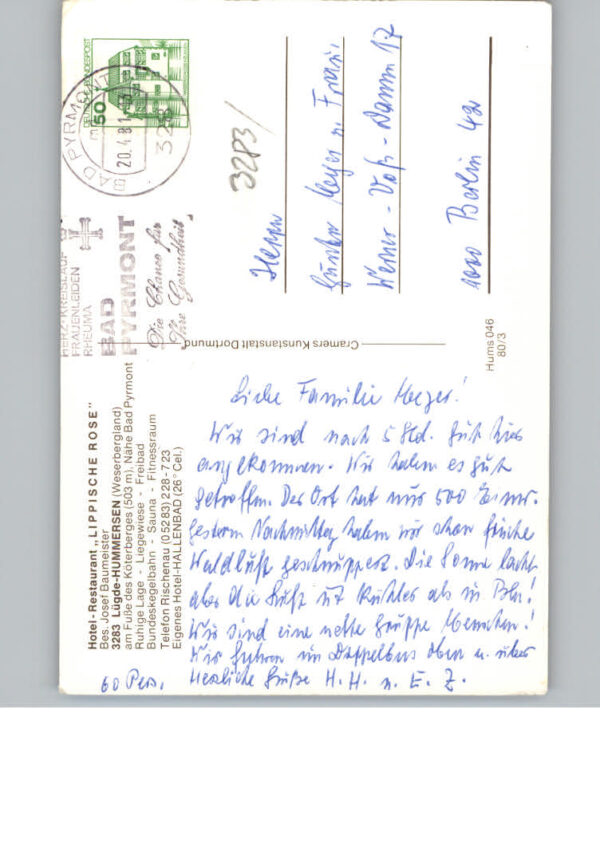 Hotel-Restaurant „LIPPISCHE ROSE"
Bes. Josef Baumeister
3283 Lügde-HUMMERSEN (Weserbergland)
am Fuße des Köterberges (503 m), Nähe Bad Pyrmont
Ruhige Lage - Liegewiese - Freibad
Bundeskegelbahn - Sauna - Fitnessraum
Telefon Rischenau (05283) 228-723
Eigenes Hotel-HALLENBAD (26° Cel.)
Liebe Familie Meyer!
Wir sind nach 5 Std. gut hier
angekommen. Wir haben es gut
getroffen. Der Ort hat nur 500 Einw.
Gestern Nachmittag haben wir schon frische
Waldluft geschnuppert. Die Sonne lacht
aber die Luft ist kühler als in Bln!
Wir sind eine nette Gruppe Menschen!
Wir fuhren im Doppelbus oben u. unten
60 Pers.
Herzliche Grüße H. H. u. E. Z.
Cramers Kunstanstalt Dortmund
Hums 046
80/3
DEUTSCHE BUNDESPOST
50
3280 BAD PYRMONT
20.4.81
HERZ-KREISLAUF
FRAUENLEIDEN
RHEUMA
BAD
PYRMONT
Die Chance für
Ihre Gesundheit
3283/
Herrn
Günter Meyer u. Frau
Werner-Voß-Damm 17
1000 Berlin 42